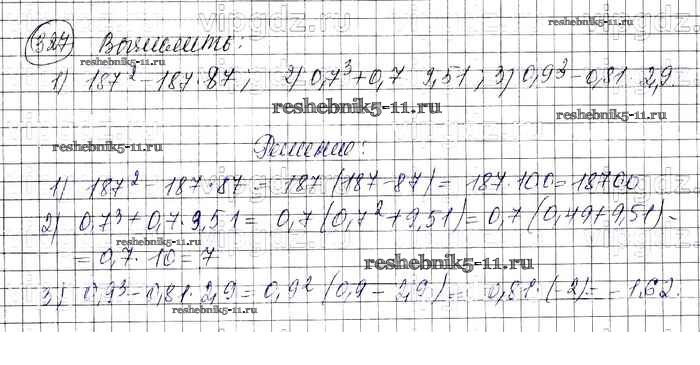 vipgdz.ru
327 Вычислить:
reshebnik5-11.ru
reshebnik5-11.ru
1) 187² - 187·87; 2) 0,7³ + 0,7 · 9,51; 3) 0,9³ - 0,81 · 2,9.
reshebnik5-11.ru
reshebnik5-11.ru
reshebnik5-11.ru
Решение:
1) 187² - 187·87 = 187 (187 - 87) = 187·100 = 18700
2) 0,7³ + 0,7·9,51 = 0,7 (0,7² + 9,51) = 0,7 (0,49 + 9,51) =
reshebnik5-11.ru
= 0,7 · 10 = 7
reshebnik5-11.ru
3) 0,9³ - 0,81·2,9 = 0,9² (0,9 - 2,9) = 0,81·(-2) = -1,62.
reshebnik5-11.ru